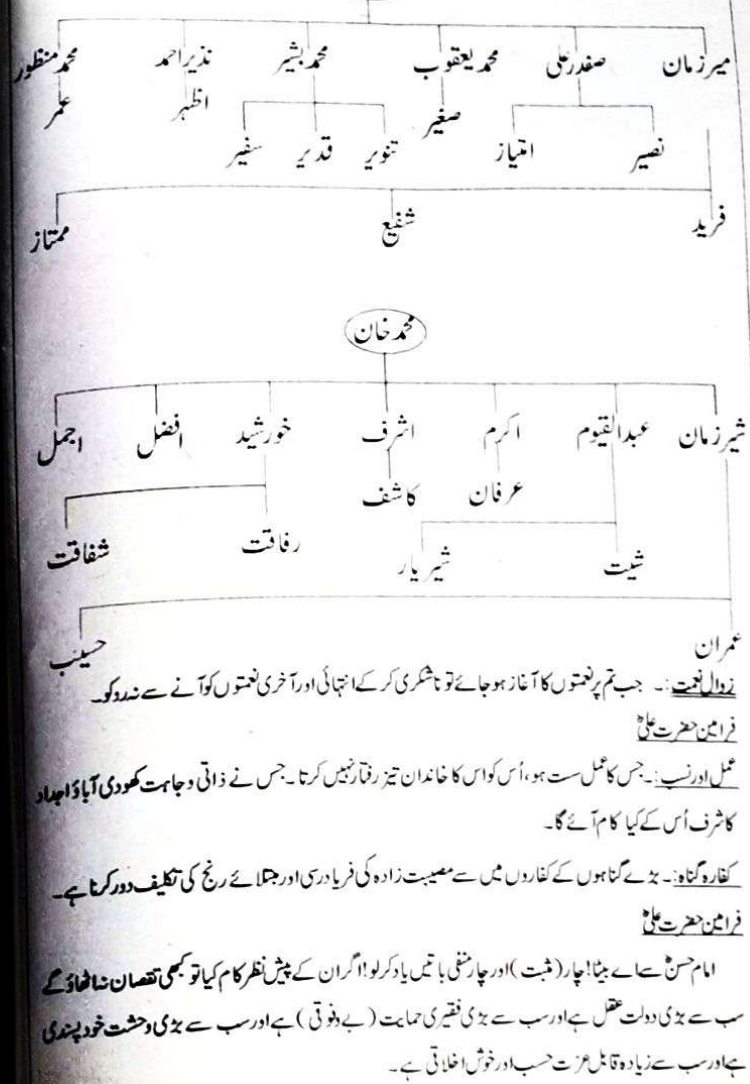 میرزمان صفدرعلی محمد یعقوب محمد بشیر نذیر احمد محمد منظور
نصیر امتیاز صغیر تنویر قدیر سفیر اظہر عمر
فرید شفیع ممتاز
محمد خان
شیرزمان عبدالقیوم اکرم اشرف خورشید افضل اجمل
عرفان کاشف
شیت شیریار رفاقت شفاقت
عمران حسیب
زوال نعمت:۔ جب تم پر نعمتوں کا آغاز ہو جائے تو ناشکری کر کے انتہائی اور آخری نعمتوں کو آنے سے نہ روکو۔
فرامین حضرت علیؓ
عمل اور نسب:۔ جس کا عمل ست ہو، اُس کو اس کا خاندان تیز رفتار نہیں کرتا۔ جس نے ذاتی وجاہت کھو دی آباؤ اجداد
کا شرف اُس کے کیا کام آئے گا۔
کفارہ گناہ:۔ بڑے گناہوں کے کفاروں میں سے مصیبت زادہ کی فریاد رسی اور مبتلائے رنج کی تکلیف دور کرنا ہے۔
فرامین حضرت علیؓ
امام حسنؓ سے اے بیٹا! چار (مثبت) اور چار منفی باتیں یاد کر لو! اگر ان کے پیش نظر کام کیا تو کبھی نقصان نہ اٹھاؤ گے
سب سے بڑی دولت عقل ہے اور سب سے بڑی فقیری حمایت (بے وفوقی) ہے اور سب سے بڑی وحشت خود پسندی
ہے اور سب سے زیادہ قابل عزت حسب اور خوش اخلاقی ہے۔